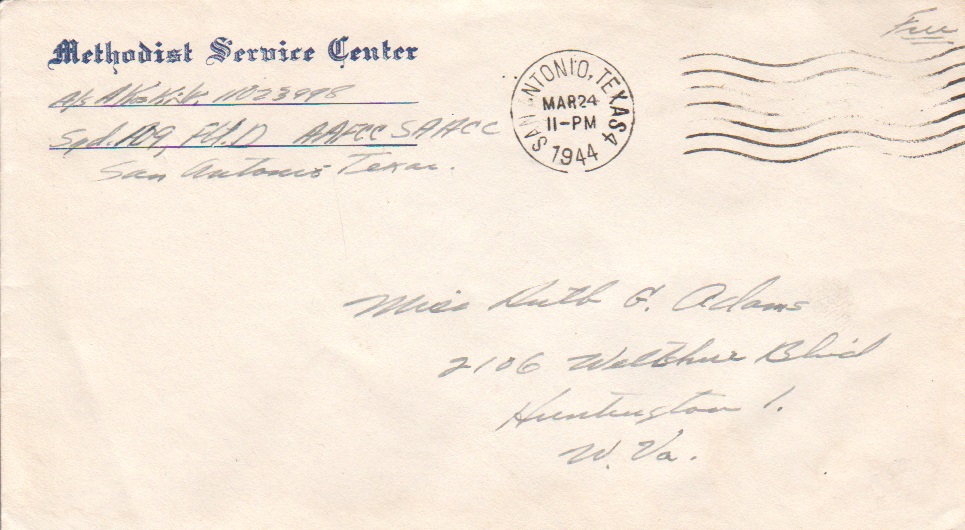 Methodist Service Center
Free
SAN ANTONIO, TEXAS 4
MAR 24
11-PM
1944
A/S
Sqd. 109, AAFCC SAACC
San Antonio Texas.
Miss Ruth G. Adams
2106 Wiltshire Blvd
Huntington 1.
W. Va.